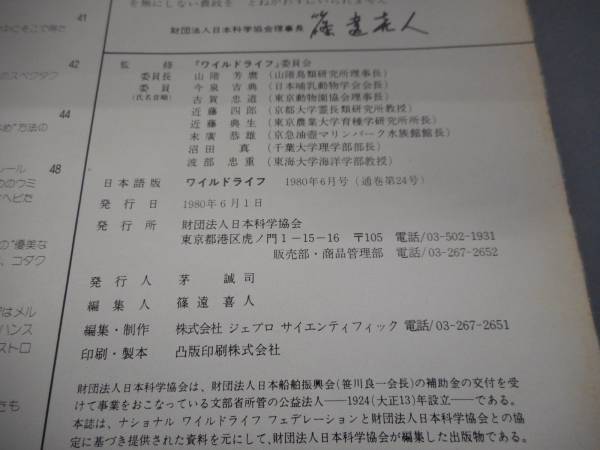 を無にしない農政を
財団法人日本科学協会理事長 篠遠喜人
監修 『ワイルドライフ』委員会
委員長 山階芳麿 (山階鳥類研究所理事長)
委員 今泉吉典 (日本哺乳動物学会会長)
(氏名音順) 古賀忠道 (東京動物園協会理事長)
近藤四郎 (京都大学霊長類研究所教授)
近藤典生 (東京農業大学育種学研究所所長)
末廣恭雄 (京急油壺マリンパーク水族館館長)
沼田真 (千葉大学理学部部長)
渡部忠重 (東海大学海洋学部教授)
日本語版 ワイルドライフ 1980年6月号 (通巻第24号)
発行日 1980年6月1日
発行所 財団法人日本科学協会
東京都港区虎ノ門1-15-16 〒105 電話/03-502-1931
販売部・商品管理部 電話/03-267-2652
発行人 茅誠司
編集人 篠遠喜人
編集・制作 株式会社 ジェプロ サイエンティフィック 電話/03-267-2651
印刷・製本 凸版印刷株式会社
財団法人日本科学協会は、財団法人日本船舶振興会(笹川良一会長)の補助金の交付を受
けて事業をおこなっている文部省所管の公益法人——1924(大正13)年設立——である。
本誌は、ナショナル ワイルドライフ フェデレーションと財団法人日本科学協会との協
定に基づき提供された資料を元にして、財団法人日本科学協会が編集した出版物である。
41
42
のスペクタク
44
方法の
ルール
48
のウミ
ヘビた
の“優美な
、コダク
はメル
ハンス
ストロ
きも